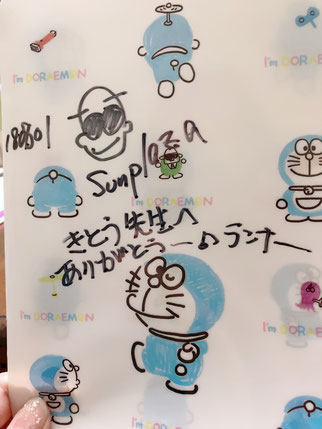 I'm DORAEMON
I'm DORAEMON
180301
Sunplaza
I'm DORAEMON
きとう先生へ
ありがとうー♪ランナー
I'm DORAEMON
I'm DORAEMON
I'm DORAEMON